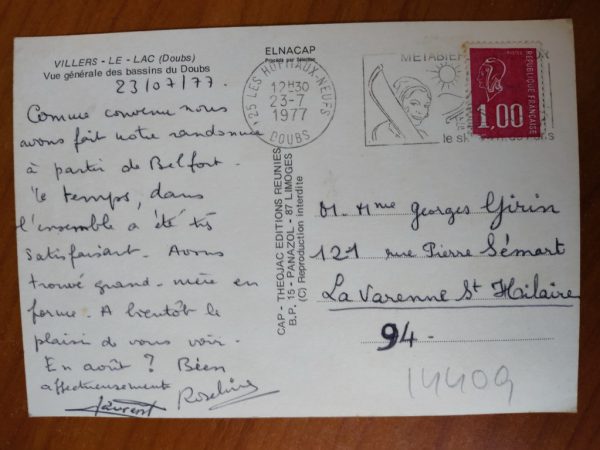 VILLERS - LE - LAC (Doubs)
Vue générale des bassins du Doubs
23/07/77.
Comme convenu nous
avons fait notre randonnée
à partir de Belfort.
le temps, dans
l'ensemble a été très
satisfaisant. Avons
trouvé grand-mère en
forme. A bientôt le
plaisir de vous voir.
En août ? Bien
affectueusement
Laurent Roseline
ELNACAP
Procédé par Sélection
25 LES HOPITAUX-NEUFS
12H30
23-7
1977
DOUBS
METABIEF
le ski
REPUBLIQUE FRANÇAISE
1,00
CAP - THEOJAC EDITIONS REUNIES
B.P. 15 - PANAZOL - 87 LIMOGES
(C) Reproduction interdite
M. Mme Georges Girin
121 rue Pierre Sémart
La Varenne St Hilaire
94-
14409